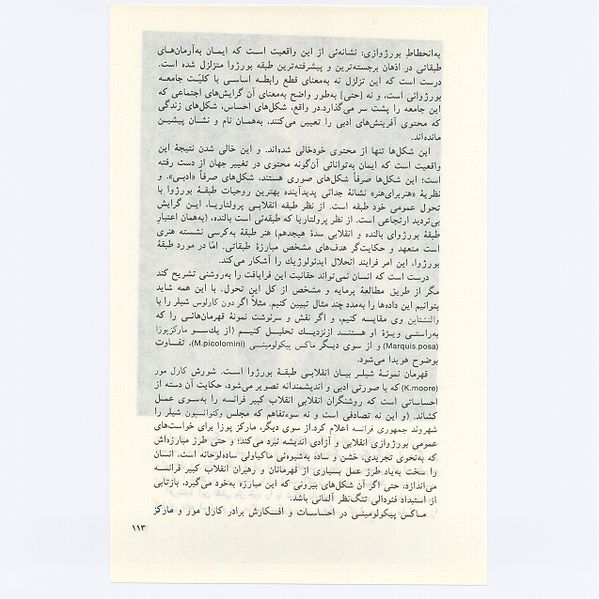 به‌انحطاط بورژوازی: نشانه‌ئی از این واقعیت است که ایمان به‌آرمان‌های
طبقاتی در اذهان برجسته‌ترین و پیشرفته‌ترین طبقه بورژوا متزلزل شده است.
درست است که این تزلزل نه به‌معنای قطع رابطـه اساسـی با کلیّـت جامعـه
بورژوائی است، و نه [حتی] به‌طور واضح به‌معنای آن گرایش‌های اجتماعی که
این جامعه را پشت سر می‌گذارد.در واقع، شکل‌های احساس، شکل‌های زندگی
که محتوی آفرینش‌های ادبی را تعیین می‌کنند، به‌همان نام و نشـان پیشیـن
مانده‌اند.
این شکل‌ها تنها از محتوی خودخالی شده‌اند. و این خالی شدن نتیجهٔ این
واقعیت است که ایمان به‌توانائی آن‌گونه محتوی در تغییر جهان از دست رفته
است؛ این شکل‌ها صرفاً شکل‌های صوری هستند، شکل‌های صرفاً «ادبی». و
نظریهٔ «هنربرای‌هنر» نشانهٔ جدائی پدیدآینده بهترین روحیات طبقهٔ بورژوا با
تحول عمومی خود طبقه است. از نظر طبقه انقلابـی پرولتاریـا، ایـن گرایش
بی‌تردید ارتجاعی است. از نظر پرولتاریا که طبقه‌ئی است بالنده، (به‌همان اعتبارِ
طبقهٔ بورژوای بالنده و انقلابی سدهٔ هیجدهم) هنر طبقهٔ به‌کرسی نشسته هنری
است متعهد و حکایت‌گر هدف‌های مشخص مبارزهٔ طبقاتی. امّا در مورد طبقهٔ
بورژوا، این امر فرایند انحلال ایدئولوژیك را آشکار می‌کند.
درست است که انسان نمی‌تواند حقانیت این فرایافت را به‌روشنی تشریح کند
مگر از طریق مطالعهٔ پرمایه و مشخص از کل این تحول. با این همه شاید
بتوانیم این داده‌ها را به‌مدد چند مثال تبیین کنیم. مثلاً اگر دون کارلوس شیلر را با
والنشتاین وی مقایسـه کنیم، و اگر نقش و سرنوشت نمونهٔ قهرمان‌هائـی را که
به‌راستـی ویـژهٔ او هستنـد ازنزدیـك تحلیـل کنیـم (از یك‌سـو مارکزپوزا
(Marquis.posa) و از سوی دیگـر ماکس پیکولومینـی (M.picolomini)، تفـاوت
بوضوح هویدا می‌شود.
قهرمان نمونهٔ شیلـر بیـان انقلابـی طبقهٔ بورژوا اسـت. شورش کارل مور
(K.moore) که با صورتی ادبی و اندیشمندانه تصویر می‌شود، حکایت آن دسته از
احساساتی است که روشنگران انقلابیِ انقلاب کبیر فرانسه را به‌سوی عمل
کشاند. (و این نه تصادفی است و نه سوءتفاهم که مجلس وکنوانسیون شیلر را
شهروند جمهوری فرانسه اعلام کرد.از سوی دیگر، مارکز پوزا برای خواست‌های
عمومی بورژوازی انقلابی و آزادی اندیشه نبرد می‌کند؛ و حتی طرز مبارزه‌اش
که به‌نحوی تجریدی، خشن و ساده، به‌شیوه‌ئی ماکیاولی ساده‌لوحانه است، انسان
را سخت به‌یاد طرز عمل بسیاری از قهرمانان و رهبران انقلاب کبیر فرانسـه
می‌اندازد، حتی اگر آن شکل‌های بیرونی که این مبارزه به‌خود می‌گیرد، بازتابی
از استبداد فئودالی تنگ‌نظر آلمانی باشد.
مـاکس پیکولومینـی در احساسـات و افـکارش برادر کارل مور و مارکز
۱۱۳